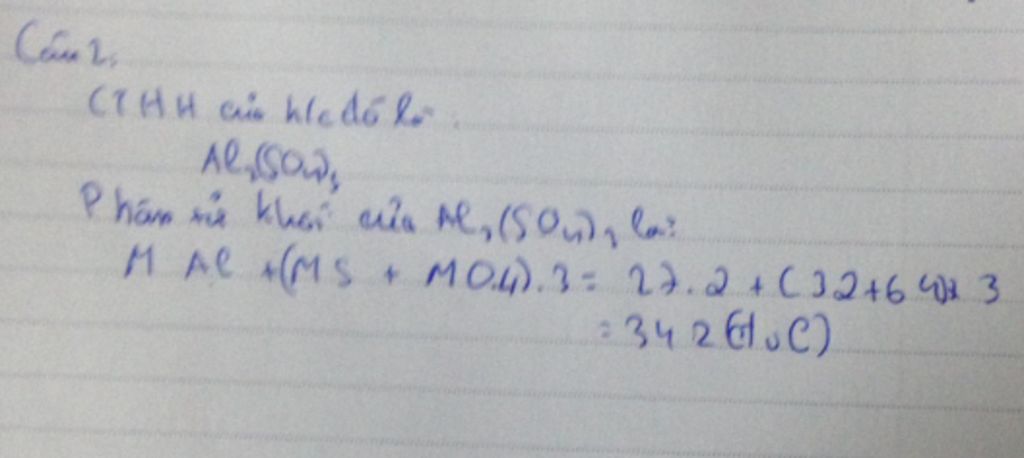 Câu 2.
CTHH của h/c đó là:
Al₂(SO₄)₃
Phân tử khối của Al₂(SO₄)₃ là:
M Al + (MS + MO.4).3 = 27.2 + (32+64)x 3
= 342 (đvC)